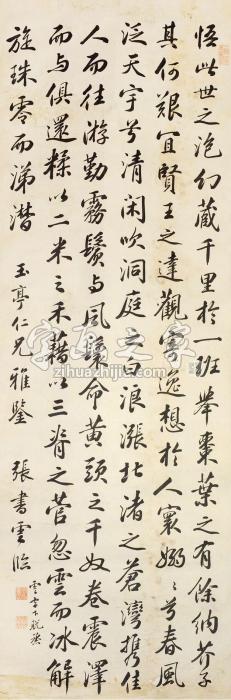 悟此世之泡幻藏千里於一班舉棗葉之有餘納芥子
其何艱宜賢王之達觀寄逸想於人寰嫋〻兮春風
泛天宇兮清閑吹洞庭之白浪漲北渚之蒼灣攜佳
人而往游勤霧鬢与風鬟命黃頭之千奴卷震澤
而与俱還糅以二米之禾藉以三脊之菅忽雲而冰解
旋珠零而涕潸 玉亭仁兄雅鑒 張書雲臨
雲字下脫烝
字画之家
zihuazhijia.com